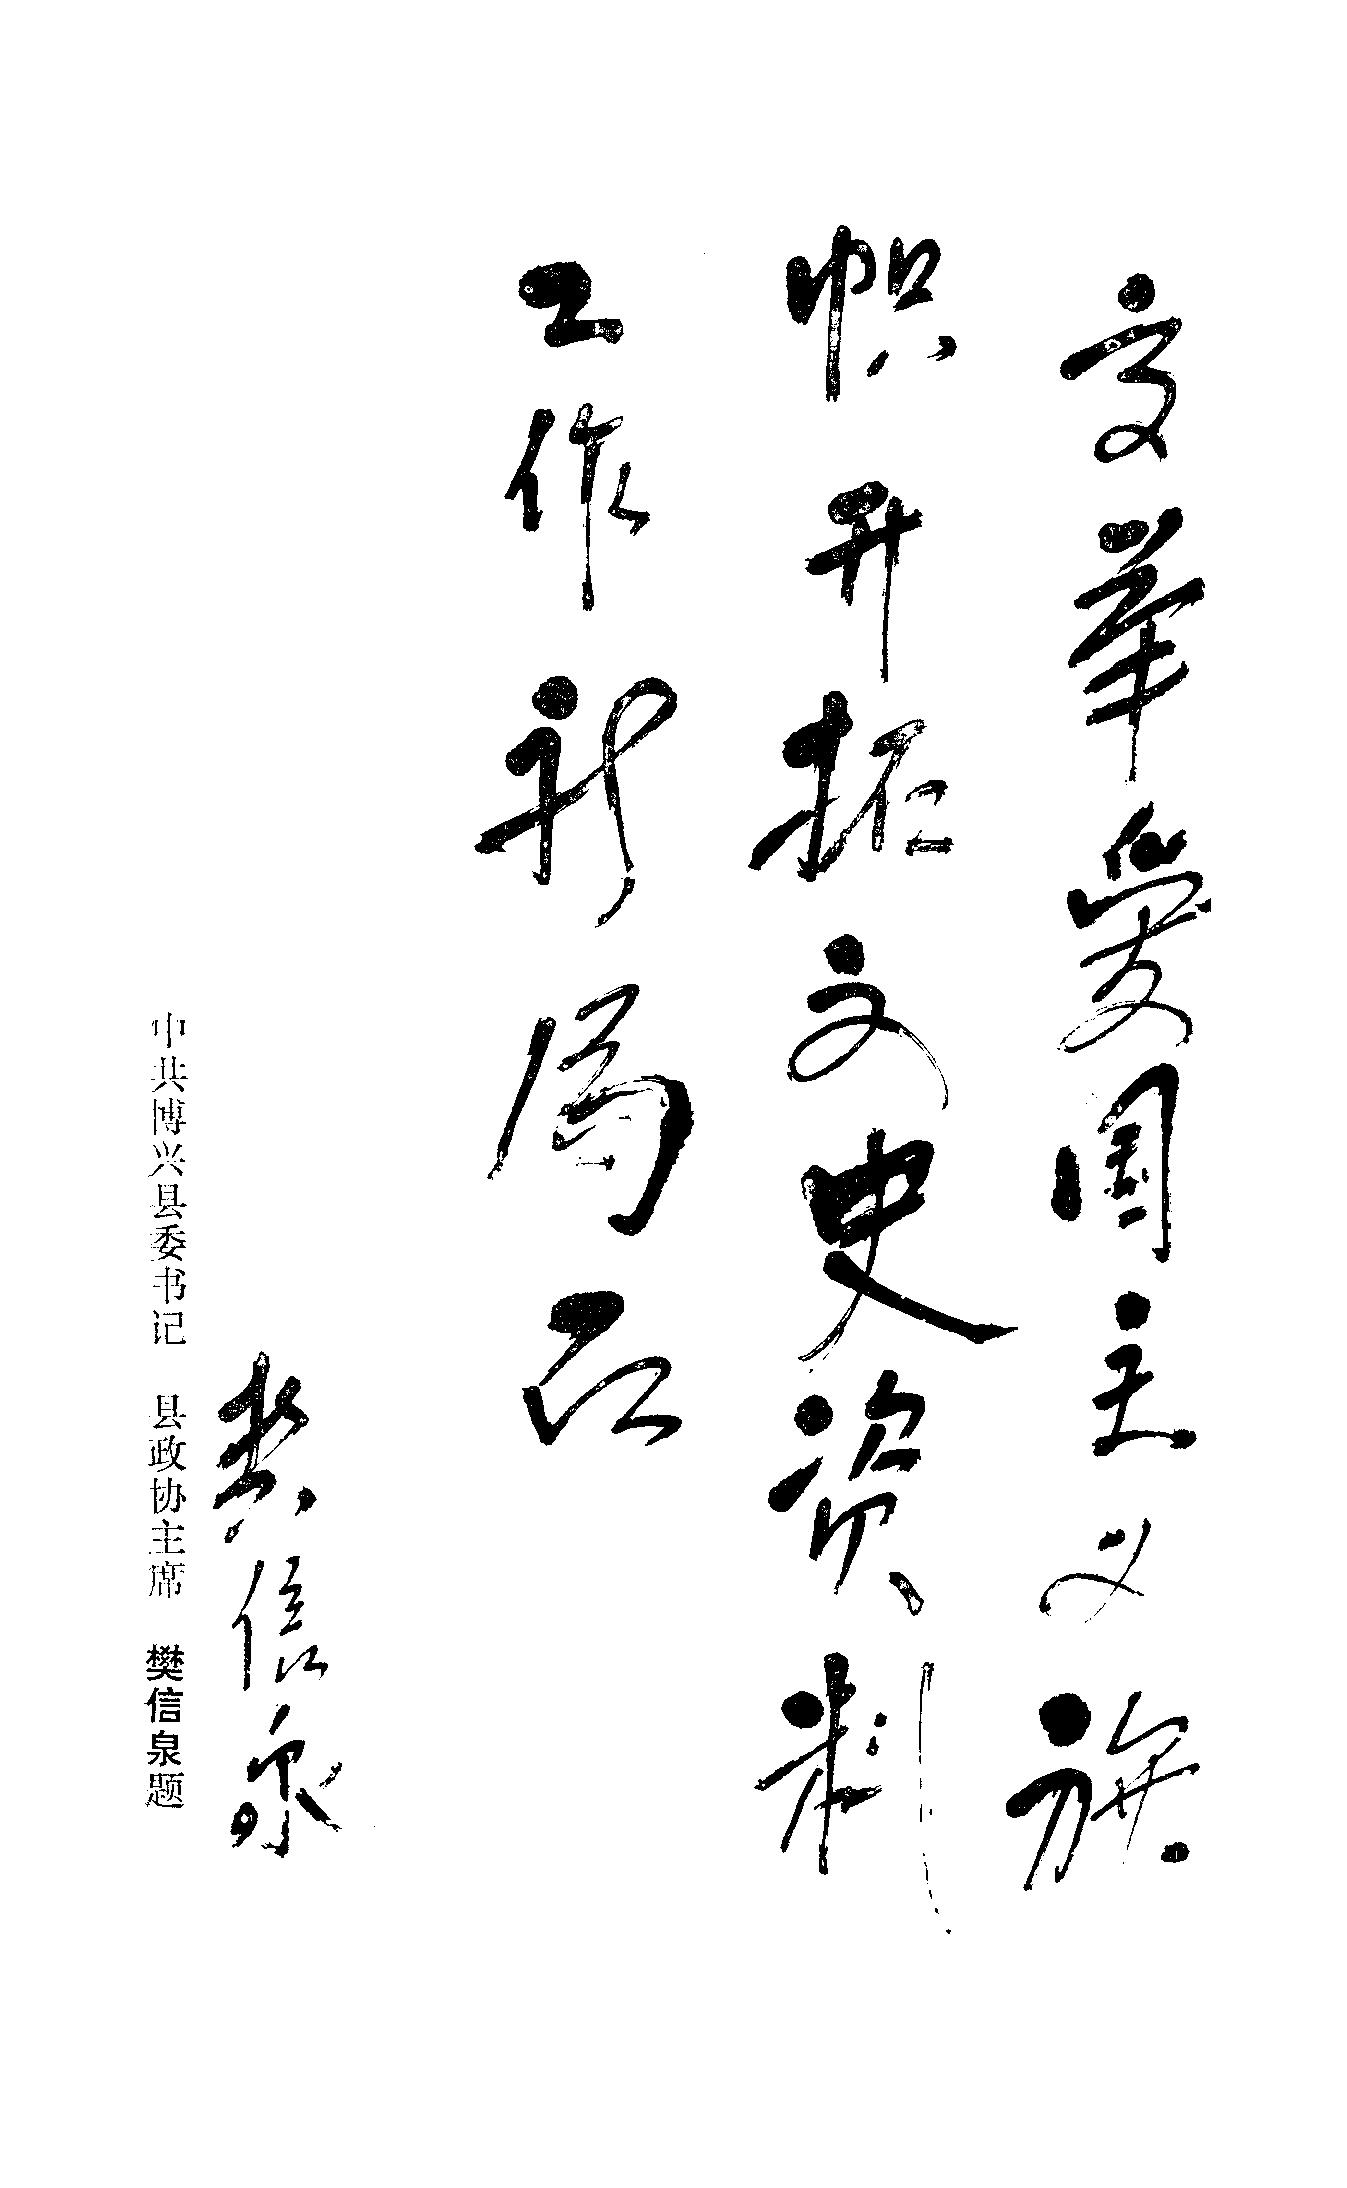 高举愛国主义旗
帜开拓文史资料
工作新局面
樊信泉
中共博兴县委书记 县政协主席 樊信泉题